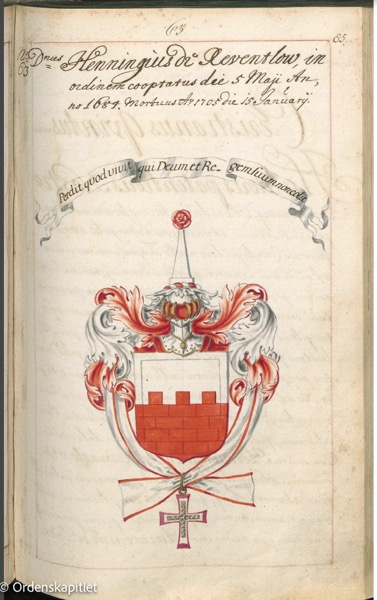 63
85.
No
63
Dnus Henningius de Reventlow, in
ordinem cooptatus die 5 Maji An,
no 1684. Mortuus Aō 1705 die 15 January.
Perdit quod vivit qui Deum et Re- gem suum non colit
© Ordenskapitlet